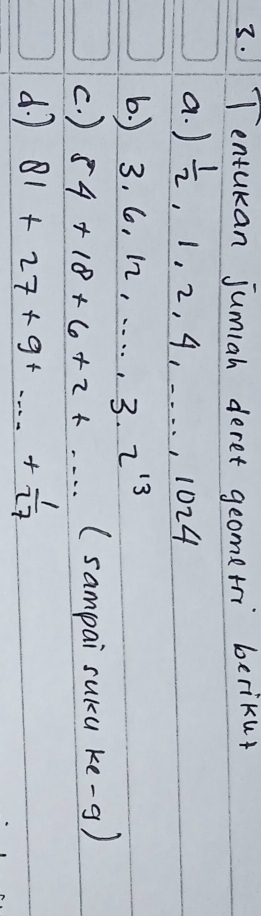 3. Tentukan jumlah deret geometri berikut
a.) 1/2, 1, 2, 4, ...., 1024
b.) 3, 6, 12, ...., 3. 2¹³
c.) 54 + 18 + 6 + 2 + .... (sampai suku ke-9)
d.) 81 + 27 + 9 + .... + 1/27